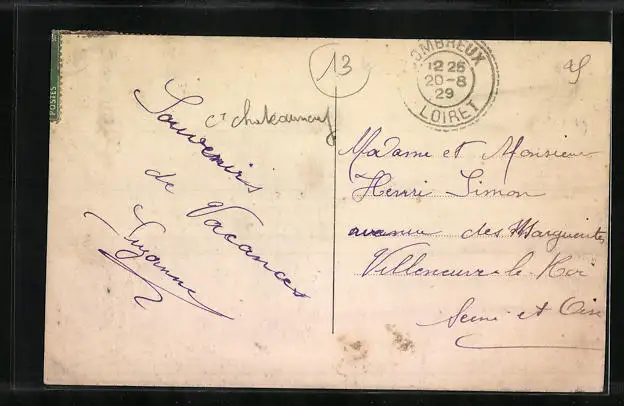 POSTES
13
COMBREUX
12 25
20-8
29
LOIRET
ct chateauneuf
Souvenirs
de Vacances
Suzanne
Madame et Monsieur
Henri Simon
avenue des Marguerites
Villeneuve-le-Roi
Seine et Oise